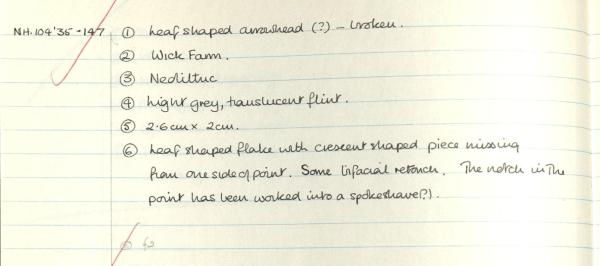 NH.104'35-147 ① Leaf shaped arrowhead (?) – broken.
② Wick Farm.
③ Neolithic
④ Light grey, translucent flint.
⑤ 2.6cm x 2cm.
⑥ Leaf shaped flake with crescent shaped piece missing
from one side of point. Some bifacial retouch. The notch in the
point has been worked into a spokeshave(?).